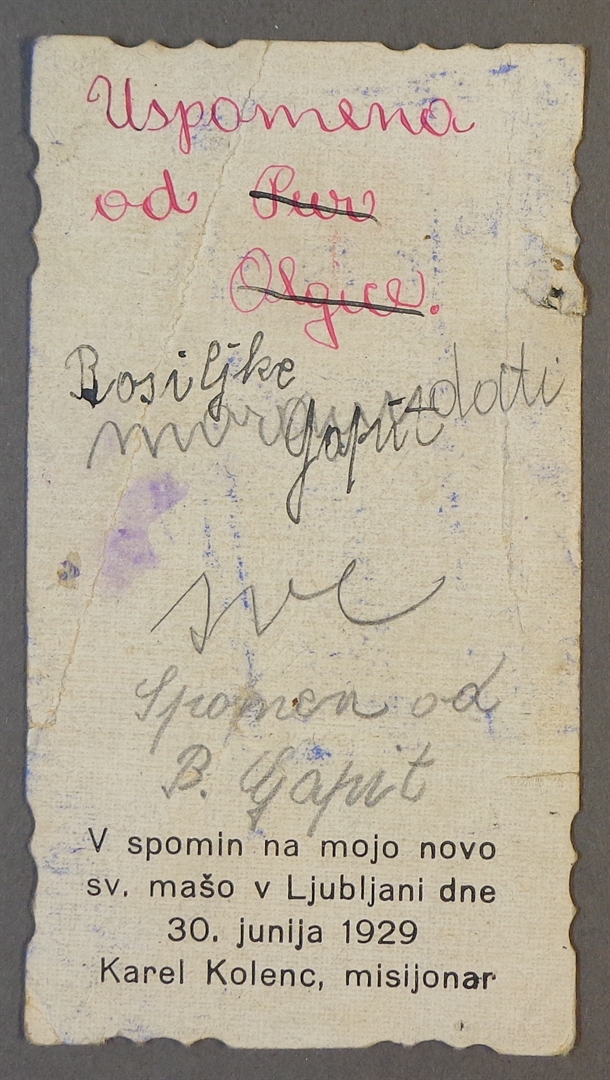 Uspomena
od Pur
Olgice.
Bosiljke
moram dati
Gapit
sve
Spomen od
B. Gapit
V spomin na mojo novo
sv. mašo v Ljubljani dne
30. junija 1929
Karel Kolenc, misijonar